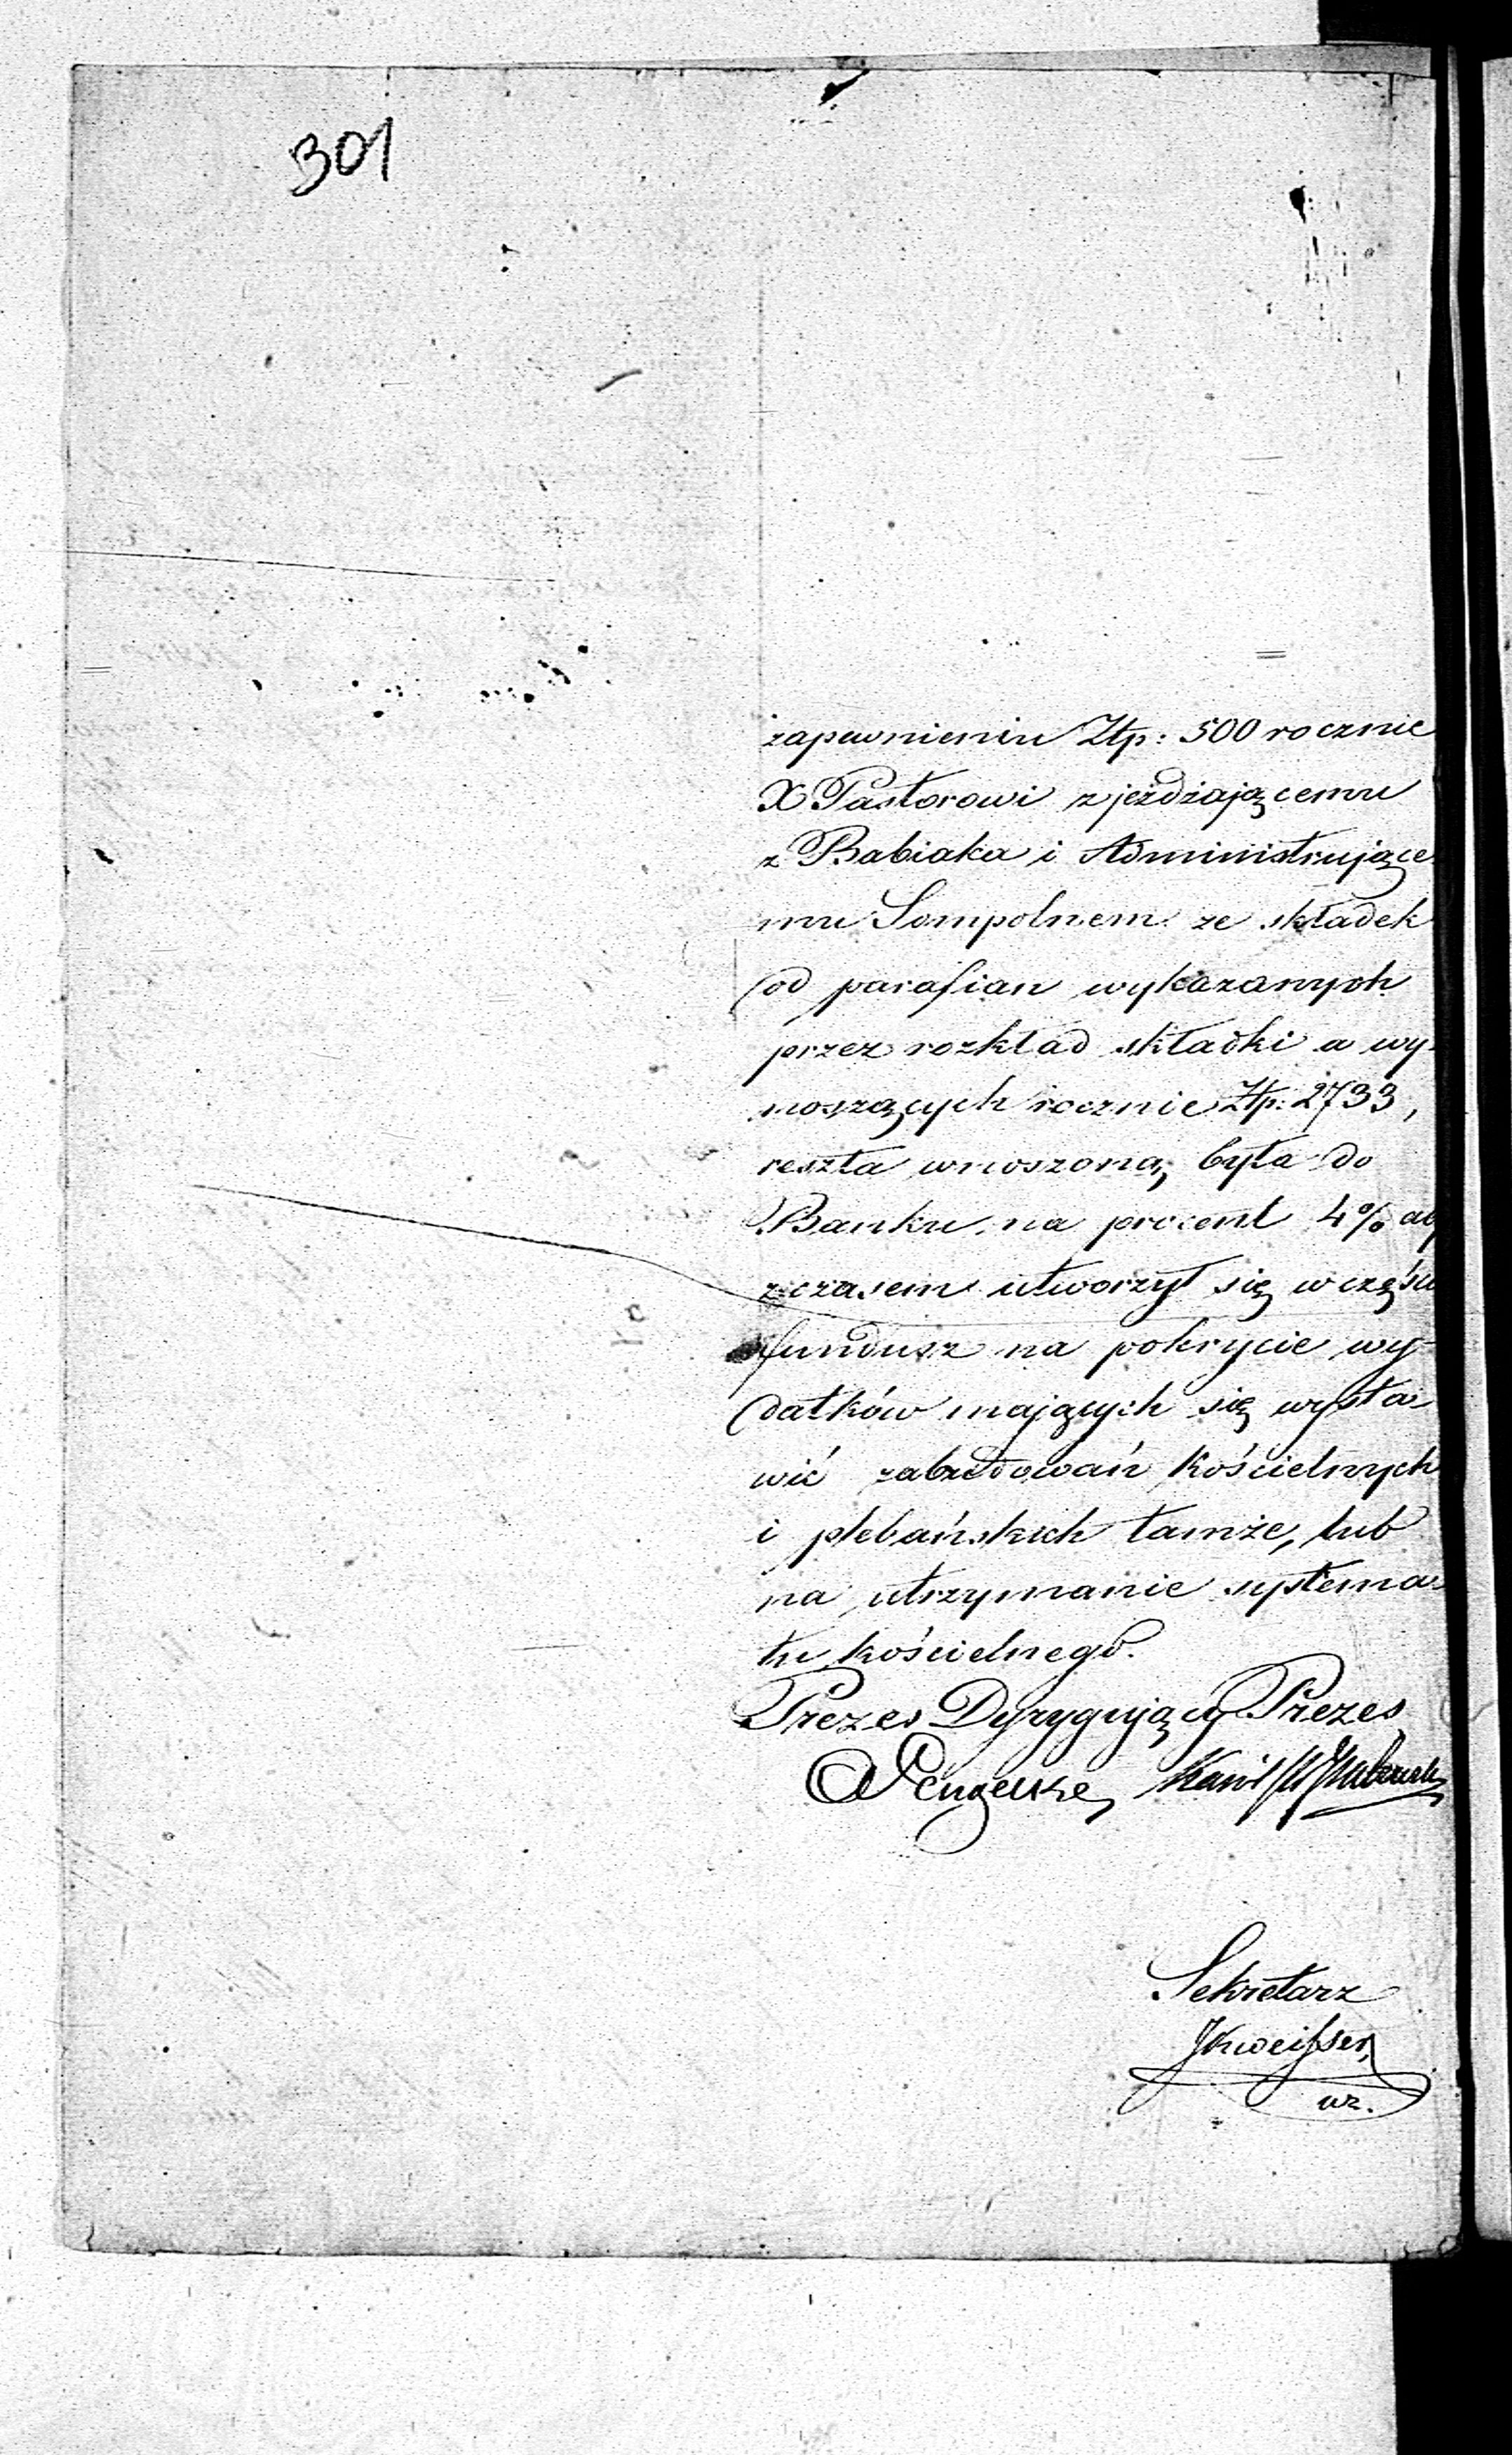 301
zapewnieniu Złp: 500 rocznie
X Pastorowi zjeżdżającemu
z Babiaka i Administrujące
mu Sompolnem ze składek
od parafian wykazanych
przez rozkład składki a wy-
noszących rocznie Złp: 2733,
reszta wnoszoną była do
Banku na procent 4% aby
z czasem utworzył się w części
fundusz na pokrycie wy-
datków mających się wysta
wić zabudowań kościelnych
i plebańskich tamże, lub
na utrzymanie systema
tu kościelnego.
Prezes Dyrygujący Prezes
Sekretarz
wz.